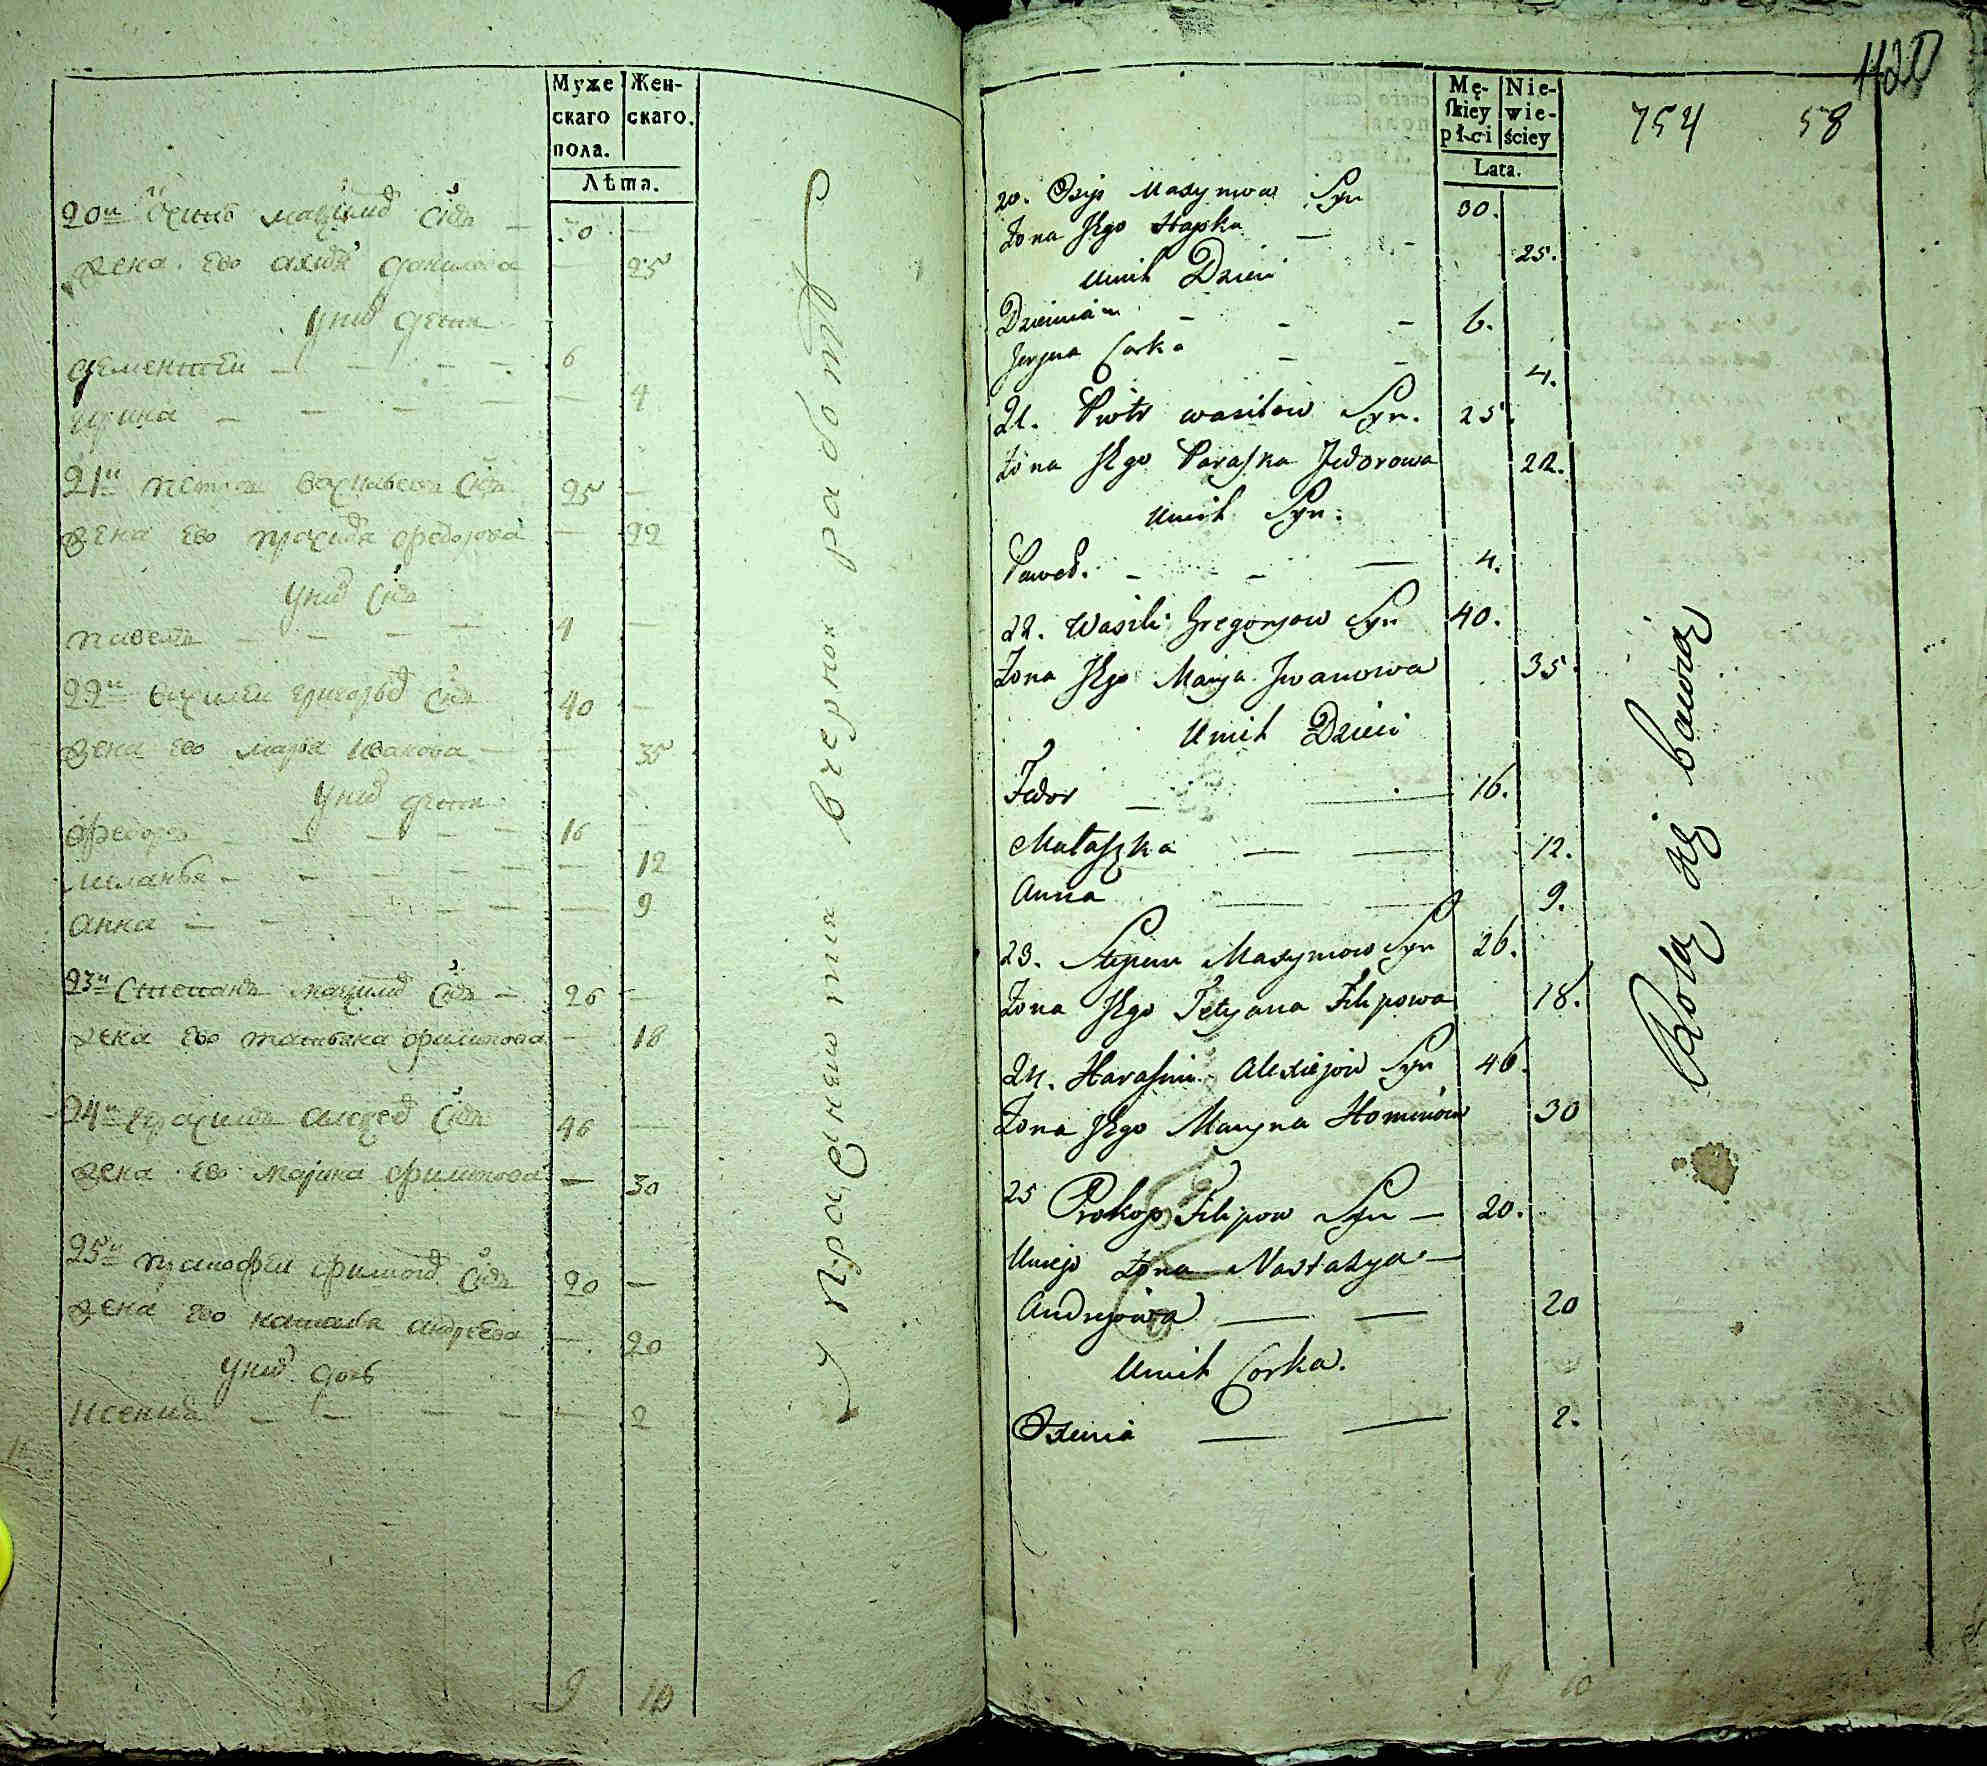 Муже
скаго
пола.
Жен-
скаго.
Лѣта.
20й Осипъ максимов Снъ — 30 —
жена ево данилова — 25
У них дети
дементей — — — — 6
ирина — — — — — 4
21й петръ васильевъ Снъ 25 —
жена ево федорова — 22
У них Снъ
павелъ — — — — 4 —
22й василей григорьев Снъ 40 —
жена ево марья иванова — — 35
У них дети
федоръ — — — — 16 —
меланья — — — — — 12
анна — — — — — — 9
23й Степанъ максимов Снъ — 26 —
жена ево татьяна филипова — 18
24й Снъ 46 —
жена ево марина филипова — 30
25й филипов Снъ 20 —
жена ево наталья андреева — 20
У них дочь
Ксения — — — — — 2
9 10
Празднеюнтя вчерною работу
420
Mę-
skiey
płci
Nie-
wie-
ściey
754 58
Lata.
20. Osip Maxymow Syn 30.
Żona Jego Hapka — - 25.
Umih Dzieci
- - — 6.
Jeryna Corka — - 4.
21. Piotr wasilow Syn. 25.
Żona Jego Paraska Fedorowa 22.
Umih Syn.
Paweł. - - — 4.
22. Wasili Gregorjow Syn 40.
Żona Jego Marya Jwanowa 35.
Umih Dzieci
Fedor — — 16.
Małaszka — — 12.
Anna — — 9.
23. Stepan Maxymow Syn 26.
Żona Jego Tetyana Filipowa 18.
24. Harasim Alexiejow Syn 46.
Żona Jego Maryna 30
25 Prokop Filipow Syn — 20.
Uniego Żona Nastazya —
Andrejowa — — 20
Umih Corka.
Oxenia — — 2.
9 10
Rolą się bawią